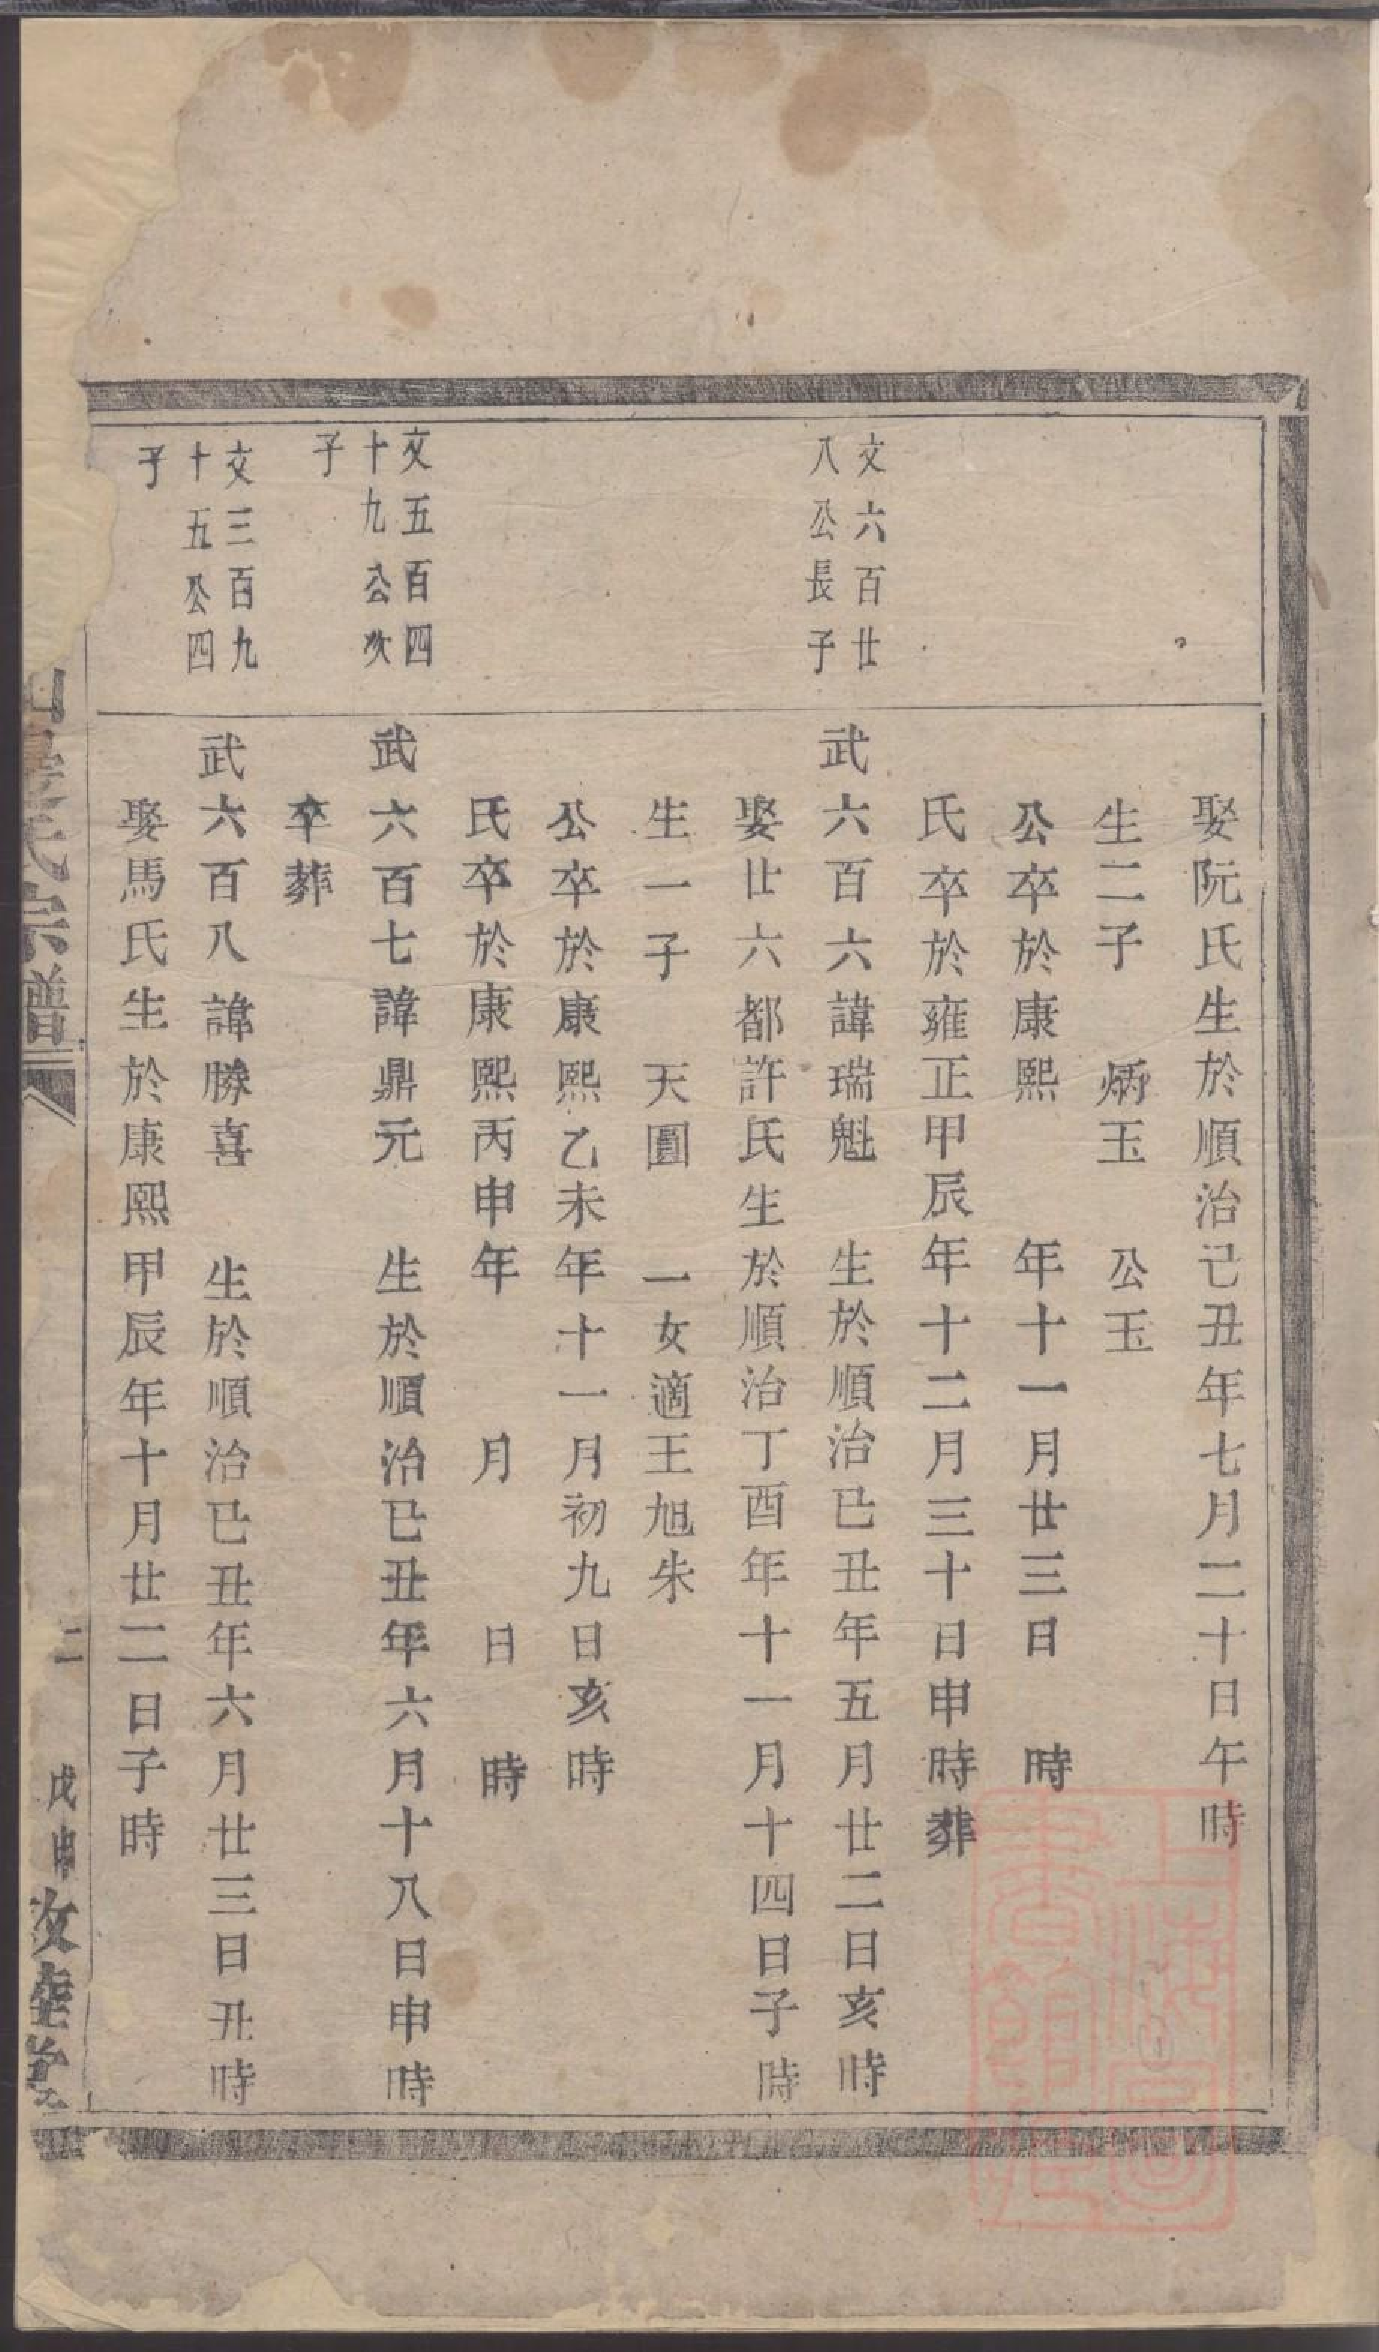 娶阮氏生於順治己丑年七月二十日午時
生二子 炳玉 公玉
公卒於康熙 年十一月廿三日 時
氏卒於雍正甲辰年十二月三十日申時葬
文六百廿
八公長子
武六百六諱瑞魁 生於順治已丑年五月廿二日亥時
娶廿六都許氏生於順治丁酉年十一月十四日子時
生一子 天圓 一女適王旭朱
公卒於康熙乙未年十一月初九日亥時
氏卒於康熙丙申年 月 日 時
文五百四
十九公次
子
武六百七諱鼎元 生於順治已丑年六月十八日申時
卒葬
文三百九
十五公四
子
武六百八諱勝喜 生於順治已丑年六月廿三日丑時
娶馬氏生於康熙甲辰年十月廿二日子時
氏宗譜
二
戊申
上海圖書館藏